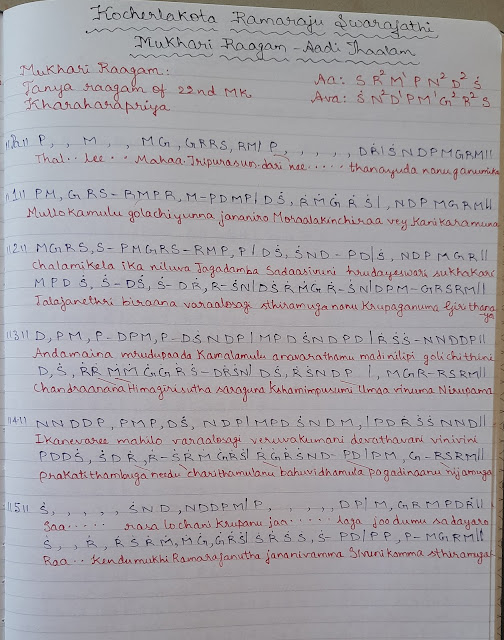 Kocherlakota Ramaraju Swarajathi
Mukhari Raagam - Aadi Thaalam
Mukhari Raagam: Aa: S R² M¹ P N² D² Ṡ
Janya raagam of 22nd MK Ava: Ṡ N² D¹ P M¹ G² R² S
Kharaharapriya
||P|| P , , M , , MG , GRRS, RM| P , , , , , DṘ|ṠNDPMGRM||
Thal.. lee ... Mahaa.Tripurasun.dari nee..... thanayuda nanuganumika
||1|| PM, GRS-RMPR, M-PDMP|DṠ, ṘṀĠṘṠ|, NDPMGRM||
Mullokamulu golachiyunna jananiro Moraalakinchiraa vey Kanikaramuna
||2|| MGRS, S-PMGRS-RMP, P|DṠ, ṠND-PD|Ṡ, NDPMGR||
chalamikela ika niluva Jagadamba Sadaasivuni hrudayeswari sukhakari
MPDṠ, Ṡ-DṠ, Ṡ-DṘ, Ṙ-ṠN|DṠṘṀĠṘ-ṠN|DPM-GRSRM||
Jalajanethri biraana varaalosagi sthiramuga nanu Krupaganuma Giri thana
ya
||3|| D, PM, P-DPM, P-DṠNDP|MPDṠNDPD|ṘṠṠ-NNDDP||
Andamaina mrudupaada Kamalamulu anavarathamu madinilipi golichithini
D, Ṡ, ṘṘṀṀĠĠṘṠ-DṘṠN|DṠ, ṘṠNDP|, MGR-RSRM||
Chandraanana Himagirisutha saraguna Kshamimpusumi Umaa vinuma Nirupama
||4|| NNDDP, PMP, DṠ, NDP|MPDṠNDM, |PDṘṠṠNND||
Ikanevaree mahilo varaalosagi veruvakumani devathavani vinivini
PDDṠ, ṠDṘ, Ṙ-ṠṘṀĠṘṠ|ṘĠṘṠND-PD|PM, G-RSRM||
Prakatithambuga needu charithamulanu bahuvidhamula pogadinaanu nijamuga
||5|| Ṡ, , , , , ṠND, NDDPM|P , , , , , DP|M, GRMPDṘ||
Saa..... rasa lochani krupanu jaa..... laga joodumu sadayaro
Ṡ, , Ṙ, ṘṠṘṀ, ṀĠ, ĠṘṠ|ṠṘṠṠ, Ṡ-PD|PP, P-MGRM||
Raa.. Kendumukhi Ramarajanutha jananivamma Sivunikomma sthiramuga